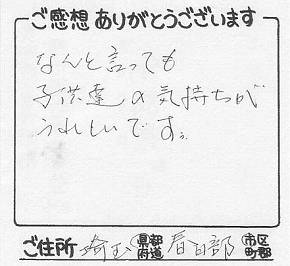 ご感想ありがとうございます
なんと言っても
子供達の気持ちが
うれしいです。
ご住所 埼玉 都道府県 春日部 市区町郡